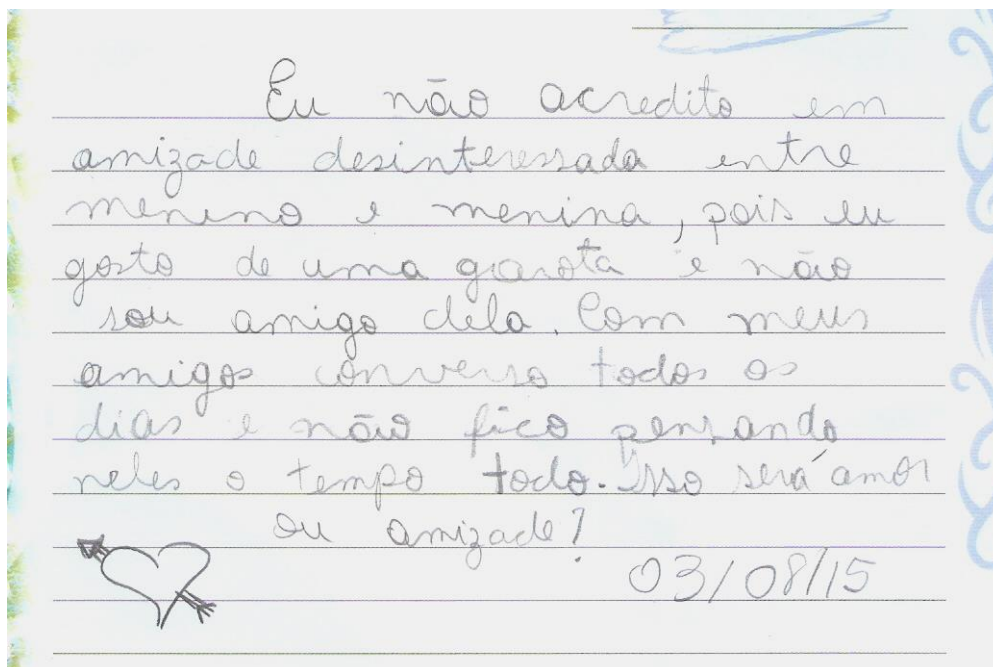 Eu não acredito em
amizade desinteressada entre
menino e menina, pois eu
gosto de uma garota e não
sou amigo dela. Com meus
amigos converso todos os
dias e não fico pensando
neles o tempo todo. Isso será amor
ou amizade?
03/08/15